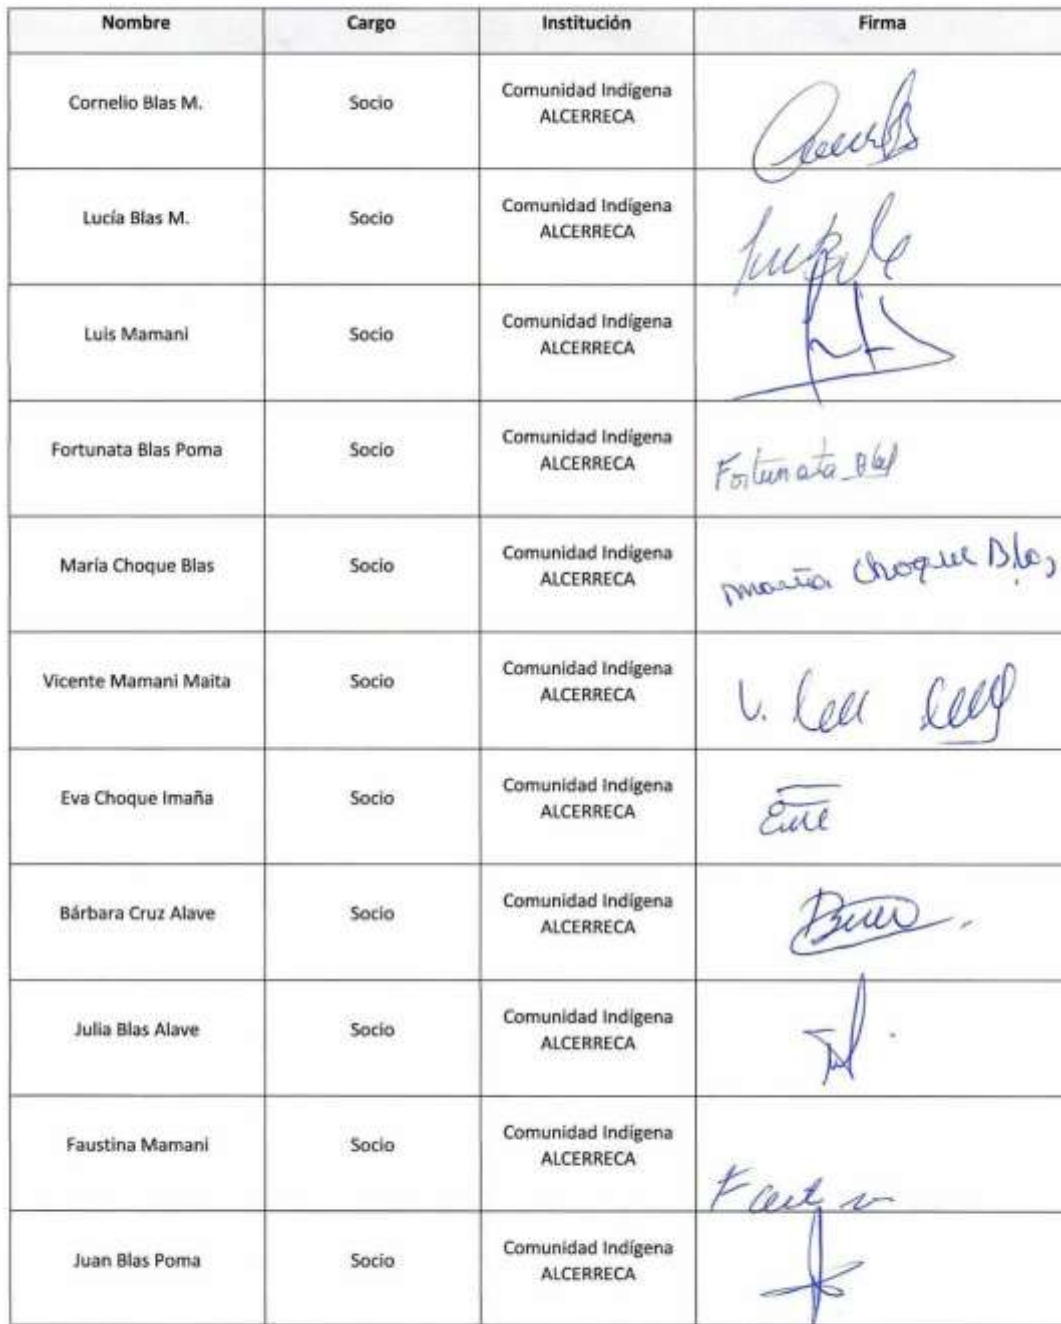 Nombre Cargo Institución Firma
Cornelio Blas M. Socio Comunidad Indígena
ALCERRECA
Lucía Blas M. Socio Comunidad Indígena
ALCERRECA
Luis Mamani Socio Comunidad Indígena
ALCERRECA
Fortunata Blas Poma Socio Comunidad Indígena
ALCERRECA Fortunata Blas
María Choque Blas Socio Comunidad Indígena
ALCERRECA maría Choque Blas
Vicente Mamani Maita Socio Comunidad Indígena
ALCERRECA
Eva Choque Imaña Socio Comunidad Indígena
ALCERRECA
Bárbara Cruz Alave Socio Comunidad Indígena
ALCERRECA
Julia Blas Alave Socio Comunidad Indígena
ALCERRECA
Faustina Mamani Socio Comunidad Indígena
ALCERRECA
Juan Blas Poma Socio Comunidad Indígena
ALCERRECA